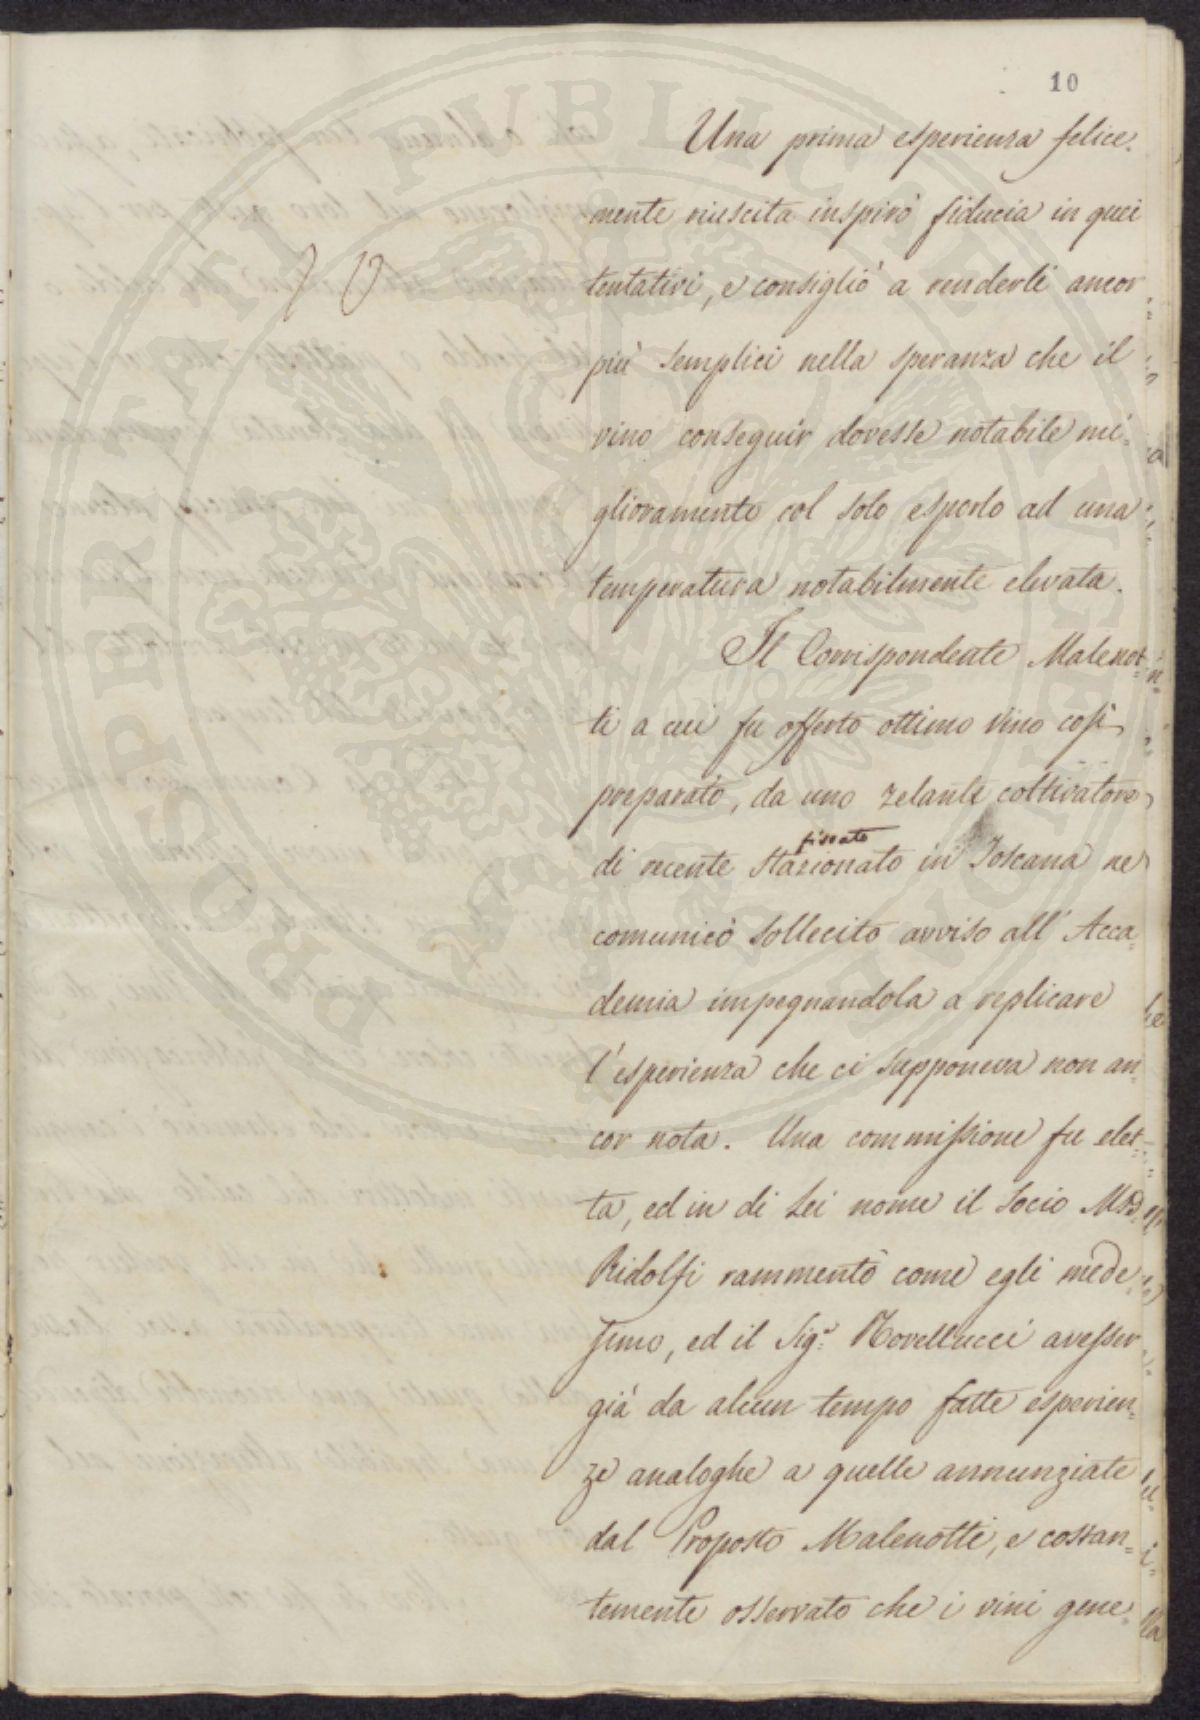 10
Una prima esperienza felice-
mente riuscita inspirò fiducia in quei
tentativi, e consigliò a renderli ancor
più semplici nella speranza che il
vino conseguir dovesse notabile mi-
glioramento col solo esporlo ad una
temperatura notabilmente elevata.
Il Corrispondente Malenot-
ti a cui fu offerto ottimo vino così
preparato, da uno zelante coltivatore
fissato
di recente stazionato in Toscana ne
comunicò sollecito avviso all' Acca-
demia impegnandola a replicare
l'esperienza che ci supponeva non an-
cor nota. Una commissione fu elet-
ta, ed in di Lei nome il Socio
Ridolfi rammentò come egli mede-
simo, ed il Sig.r Novellucci avesser
già da alcun tempo fatte esperien-
ze analoghe a quelle annunziate
dal Proposto Malenotti, e costan-
temente osservato che i vini gene-
PROSPERITATI PUBLICAE AUGENDAE